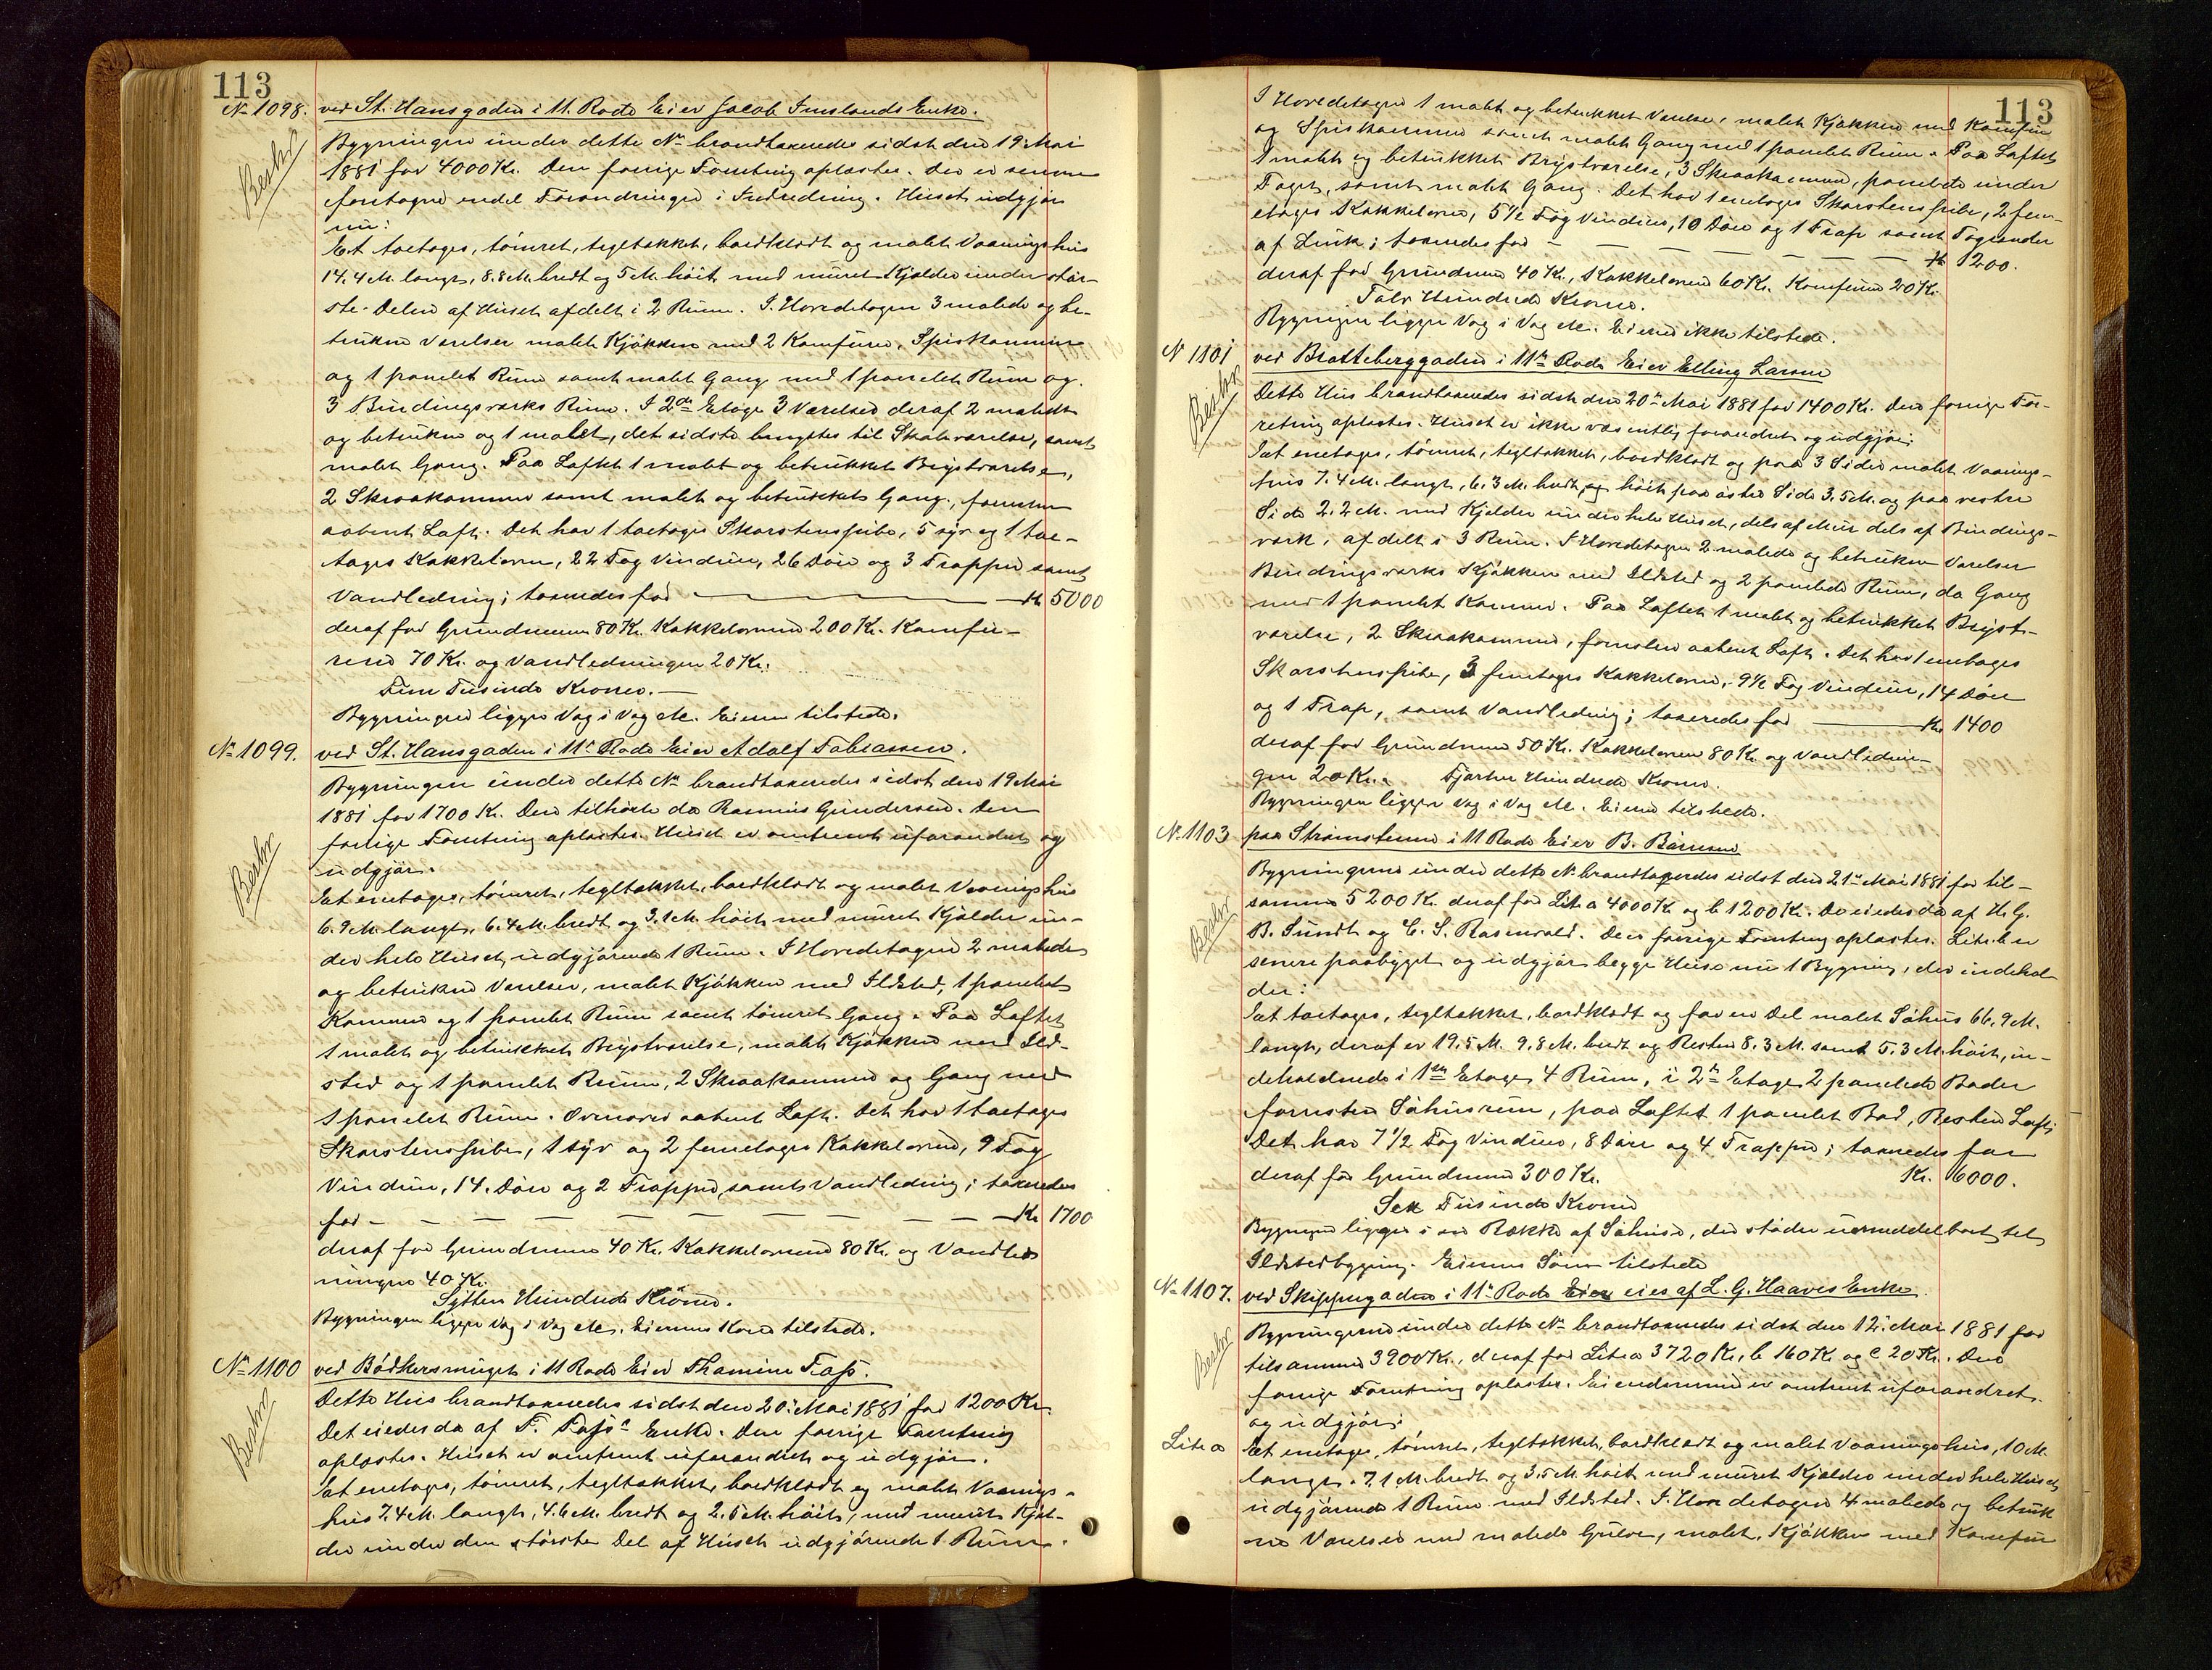 113
No 1098. ved St. Hansgaden i 11. Rode Eier Jacob Imslands Enke.
Beskr
Bygningen under dette No brandtaxeredes sidst den 19 Mai
1881 for 4000 Kr. Den forrige Forretning oplæstes. Der er senere
foretagne endel Forandringer i Indredning. Huset udgjør
nu:
Et toetages, tømret, tegltækket, bordklædt og malet Vaaningshus
14.4 M. langt, 8.8 M. bredt og 5 M. høit med muret Kjælder under stør-
ste Delen af Huset afdelt i 2 Rum. I Hovedetagen 3 malede og be-
trukne Værelser malet Kjøkken med 2 Komfurer, Spiskammer
og 1 panelet Rum samt malet Gang med 1 panelet Rum og
3 Bindingsværks Rum. I 2den Etage 3 Værelser deraf 2 malede
og betrukne og 1 malet, det sidste benyttes til Skoleværelse, samt
malet Gang. Paa Loftet 1 malet og betrukket Brystværelse,
2 Skraakammer samt malet og betrukket Gang, forresten
aabent Loft. Det har 1 toetages Skorstenspibe, 5 syv og 1 toe-
tages Kakkelovne, 22 Fag Vinduer, 26 Døre og 3 Trapper samt
Vandledning; taxeredes for Kr 5000
deraf for Grundmuren 80 Kr. Kakkelovnene 200 Kr. Komfu-
rene 70 Kr. og Vandledningen 20 Kr.
Fem Tusinde Kroner.
Bygningen ligger Væg i Væg etc. Eieren tilstede.
No 1099. ved St. Hansgaden i 11te Rode Eier Adolf Tobiassen.
Beskr
Bygningen under dette No brandtaxeredes sidst den 19 Mai
1881 for 1700 Kr. Den tilhørte da Rasmus Gundersen. Den
forrige Forretning oplæstes. Huset er omtrent uforandret og
udgjør.
Et enetages, tømret, tegltækket, bordklædt og malet Vaaningshus
6.9 M. langt, 6.4 M. bredt og 3.1 M. høit med muret Kjælder un-
der hele Huset, udgjørende 1 Rum. I Hovedetagen 2 malede
og betrukne Værelser, malet Kjøkken med Ildsted, 1 panelet
Kammer og 1 panelet Rum samt tømret Gang. Paa Loftet
1 malet og betrukket Brystværelse, malet Kjøkken med Ild-
sted og 1 panelet Rum, 2 Skraakammer og Gang med
1 panelet Rum. Ovenover aabent Loft. Det har 1 toetages
Skorstenspibe, 1 syv og 2 femetages Kakkelovne, 9 Fag
Vinduer, 14. Døre og 2 Trapper, samt Vandledning; taxeredes
for Kr 1700
deraf for Grundmuren 40 Kr. Kakkelovnene 80 Kr. og Vandled
ningen 40 Kr.
Sytten Hundrede Kroner.
Bygningen ligger Væg i Væg etc. Eierens Kone tilstede.
No 1100 ved Bødkersmuget i 11 Rode Eier Thomine Fass.
Beskr
Dette Hus brandtaxeredes sidst den 20. Mai 1881 for 1200 Kr.
Det eiedes da af F. Fass' Enke. Den forrige Forretning
oplæstes. Huset er omtrent uforandret og udgjør.
Et enetages, tømret, tegltækket, bordklædt og malet Vaanings-
hus 7.4 M. langt, 4.6 M. bredt og 2.5 M. høit, med muret Kjæl-
der under den største Del af Huset udgjørende 1 Rum.
113
I Hovedetagen 1 malet og betrukket Værelse, malet Kjøkken med Komfur
og Spiskammer samt malet Gang med 1 panelet Rum. Paa Loftet
1 malet og betrukket Brystværelse, 3 Skraakammer, panelede under
Taget, samt malet Gang. Det har 1 enetages Skorstenspibe, 2 fem-
etages Kakkelovne, 5½ Fag Vinduer, 10 Døre og 1 Trap samt Tagrender
af Zink; taxeredes for Kr 1200.
deraf for Grundmuren 40 Kr., Kakkelovnene 60 Kr. Komfuren 20 Kr.
Tolv Hundrede Kroner.
Bygningen ligger Væg i Væg etc. Eieren ikke tilstede.
N 1101 ved Bratteberggaden i 11te Rode Eier Elling Larsen
Beskr
Dette Hus brandtaxeredes sidst den 20de Mai 1881 for 1400 Kr. Den forrige For-
retning oplæstes. Huset er ikke væsentlig forandret og udgjør:
Et enetages, tømret, tegltækket, bordklædt og paa 3 Sider malet Vaanings-
hus 7.4 M. langt, 6.3 M. bredt og høit paa østre Side 3,5 M. og paa vestre
Side 2.2 M. med Kjelder under hele Huset, dels af Mur dels af Bindings-
værk, afdelt i 3 Rum. I Hovedetagen 2 malede og betrukne Værelser
Bindingsværks Kjøkken med Ildsted og 2 panelede Rum, do Gang
med 1 panelet Kammer. Paa Loftet 1 malet og betrukket Bryst-
værelse, 2 Skraakammer, forresten aabent Loft. Det har 1 enetages
Skorstenspibe, 3 femetages Kakkelovne, 9½ Fag Vinduer, 14 Døre
og 1 Trap, samt Vandledning; taxeredes for Kr 1400
deraf for Grundmuren 50 Kr. Kakkelovnene 80 Kr. og Vandlednin-
gen 20 Kr. Fjorten Hundrede Kroner.
Bygningen ligger Væg i Væg etc. Eieren tilstede.
No 1103 paa Strømstenen i 11 Rode Eier B. Børresen
Beskr
Bygningerne under dette No brandtaxeredes sidst den 21de Mai 1881 for til-
sammen 5200 Kr. deraf for Litr a 4000 Kr og b 1200 Kr. De eiedes da af H. G.
B. Sundt og C. S. Rosenvald. Den forrige Forretning oplæstes. Litr. b er
senere paabygget og udgjør begge Huse nu 1 Bygning, der indehol
der:
Et toetages, tegltækket, bordklædt og for en Del malet Søhus 66,9 M.
langt, deraf er 19.5 M. 9,8 M. bredt og Resten 8.3 M. samt 5.3 M. høit, in-
deholdende i 1ste Etage 4 Rum, i 2den Etage 2 panelede Boder
forresten Søhusrum, paa Loftet 1 panelet Bod, Resten Loft;
Det har 7½ Fag Vinduer, 8 Døre og 4 Trapper; taxeredes for
deraf for Grundmuren 300 Kr. Kr. 6000.
Sex Tusinde Kroner
Bygningen ligger i en Række af Søhuse, der støder umiddelbart til
Ildstedbygning. Eierens Søn tilstede
No 1107. ved Skippergaden i 11te Rode Eier eies af L. G. Haaves Enke.
Beskr
Bygningerne under dette No brandtaxeredes sidst den 12. Mai 1881 for
tilsammen 3900 Kr., deraf for Litr a 3720 Kr, b 160 Kr og c 20 Kr. Den
forrige Forretning oplæstes. Eiendommen er omtrent uforandret
og udgjør:
Litr a Et enetages, tømret, tegltækket, bordklædt og malet Vaaningshus, 10 M.
langt. 7.1 M. bredt og 3.5 M. høit med muret Kjælder under hele Huset
udgjørende 1 Rum med Ildsted. I Hovedetagen 4 malede og betruk
ne Værelser med malede Gulve, malet Kjøkken med Komfur